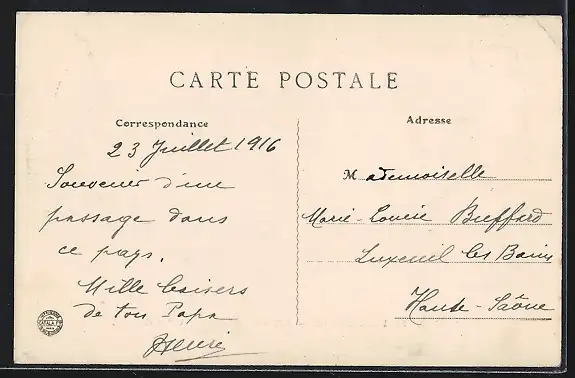 CARTE POSTALE
Correspondance
23 Juillet 1916
Souvenir d'une
passage dans
ce pays.
Mille baisers
de ton Papa
Henri
Adresse
Mademoiselle
Marie-Louise Buffard
Luxeuil les Bains
Haute-Saône